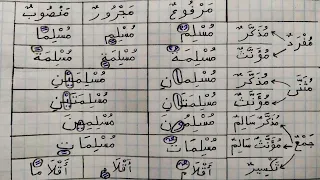 مَرْفُوعٌ مَجْرُورٌ مَنْصُوبٌ
مُفْرَدٌ مُذَكَّرٌ مُسْلِمٌ مُسْلِمٍ مُسْلِمًا
مُؤَنَّثٌ مُسْلِمَةٌ مُسْلِمَةٍ مُسْلِمَةً
مُثَنًّى مُذَكَّرٌ مُسْلِمَانِ مُسْلِمَيْنِ
مُؤَنَّثٌ مُسْلِمَتَانِ مُسْلِمَتَيْنِ
جَمْعٌ مُذَكَّرٌ سَالِمٌ مُسْلِمُونَ مُسْلِمِينَ
مُؤَنَّثٌ سَالِمٌ مُسْلِمَاتٌ مُسْلِمَاتٍ
تَكْسِيرٌ أَقْلَامٌ أَقْلَامٍ أَقْلَامًا